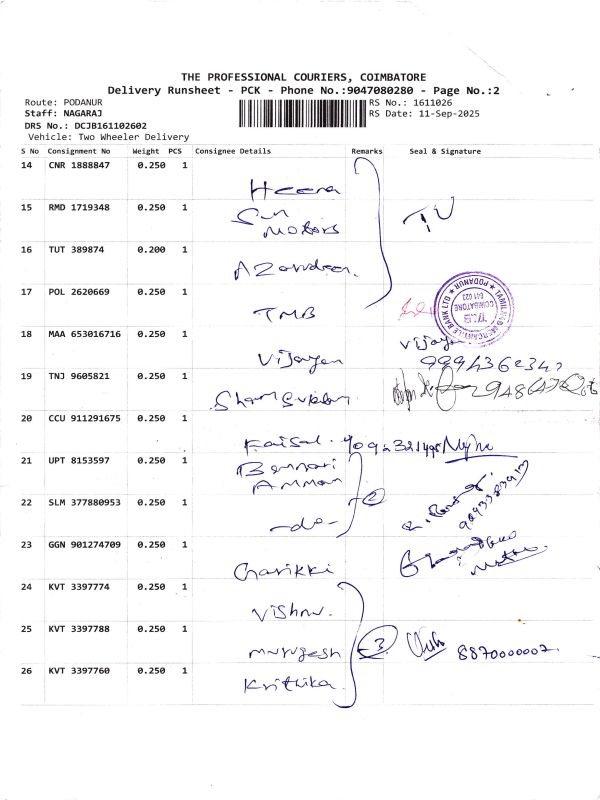 THE PROFESSIONAL COURIERS, COIMBATORE
Delivery Runsheet - PCK - Phone No.:9047080280 - Page No.:2
Route: PODANUR
RS No.: 1611026
Staff: NAGARAJ
RS Date: 11-Sep-2025
DRS No.: DCJB161102602
Vehicle: Two Wheeler Delivery
S No Consignment No Weight PCS Consignee Details Remarks Seal & Signature
14 CNR 1888847 0.250 1
Heera
15 RMD 1719348 0.250 1
Sun
Motors
16 TUT 389874 0.200 1
17 POL 2620669 0.250 1
TMB
TAMILNAD MERCANTILE BANK LTD
PODANUR
COIMBATORE
641 023
18 MAA 653016716 0.250 1
Vijayan Vijayan
19 TNJ 9605821 0.250 1
20 CCU 911291675 0.250 1
Faisal.
21 UPT 8153597 0.250 1
Bannari
Amman
22 SLM 377880953 0.250 1
2
-do-
23 GGN 901274709 0.250 1
24 KVT 3397774 0.250 1
Vishnu.
25 KVT 3397788 0.250 1
Murugesh 3 8870000007.
26 KVT 3397760 0.250 1
Krithika.